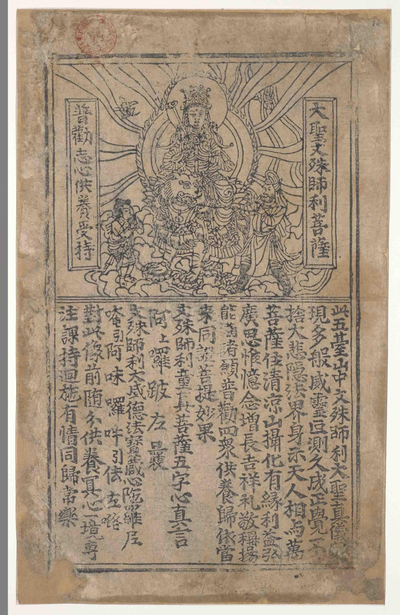 大聖文殊師利菩薩
普勸志心供養受持
此五臺山中文殊師利大聖真儀變
現多般威靈叵測久成正覺不
捨大悲隱法界身示天人相與萬
菩薩住清凉山攝化有緣利益弘
廣思惟憶念增長吉祥禮敬稱揚
能滿諸願普勸四眾供養歸依當
來同證菩提妙果
文殊師利童真菩薩五字心真言
阿上囉跛左曩
文殊師利大威德法寶藏心陀羅尼
唵引阿味囉吽引佉左咯
對此像前隨分供養冥心一境專
注課持迴施有情同歸常樂